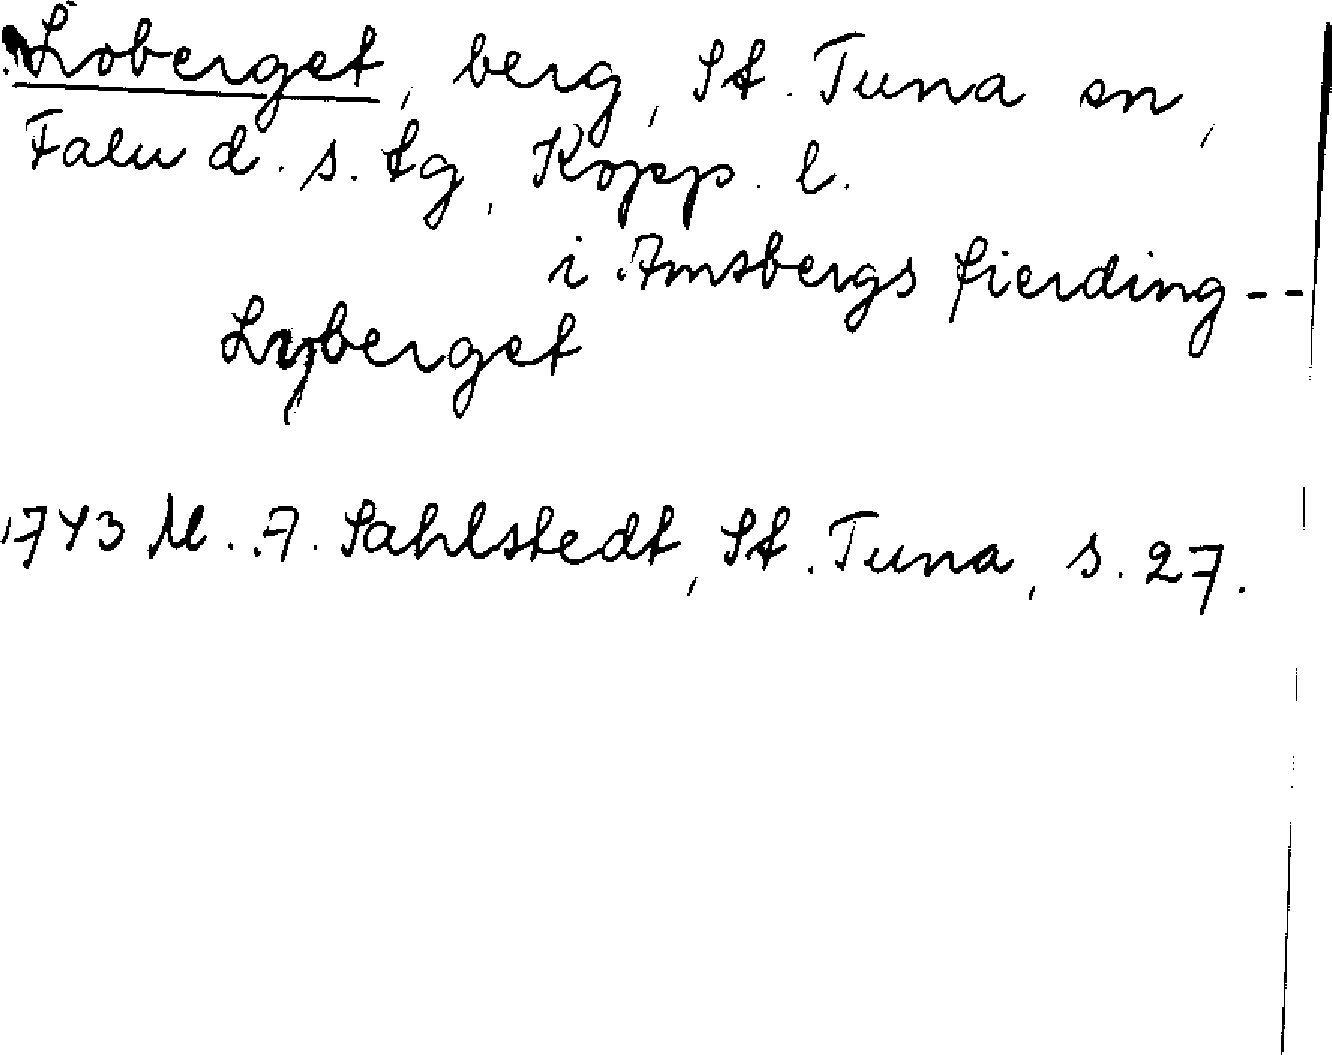 Loberget, berg, St. Tuna sn,
Falu d. s. tg, Kopp. l.
i Amsbergs fierding--
Lyberget
1743 M. A. Sahlstedt, St. Tuna, s. 27.